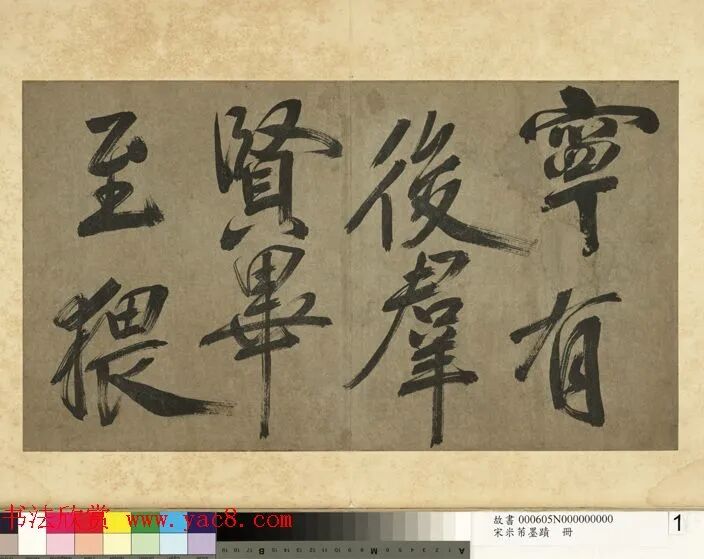 寧有
後羣
賢畢
至猥
书法欣赏 www.yac8.com
故書 000605N000000000
宋米芾墨蹟 冊
1